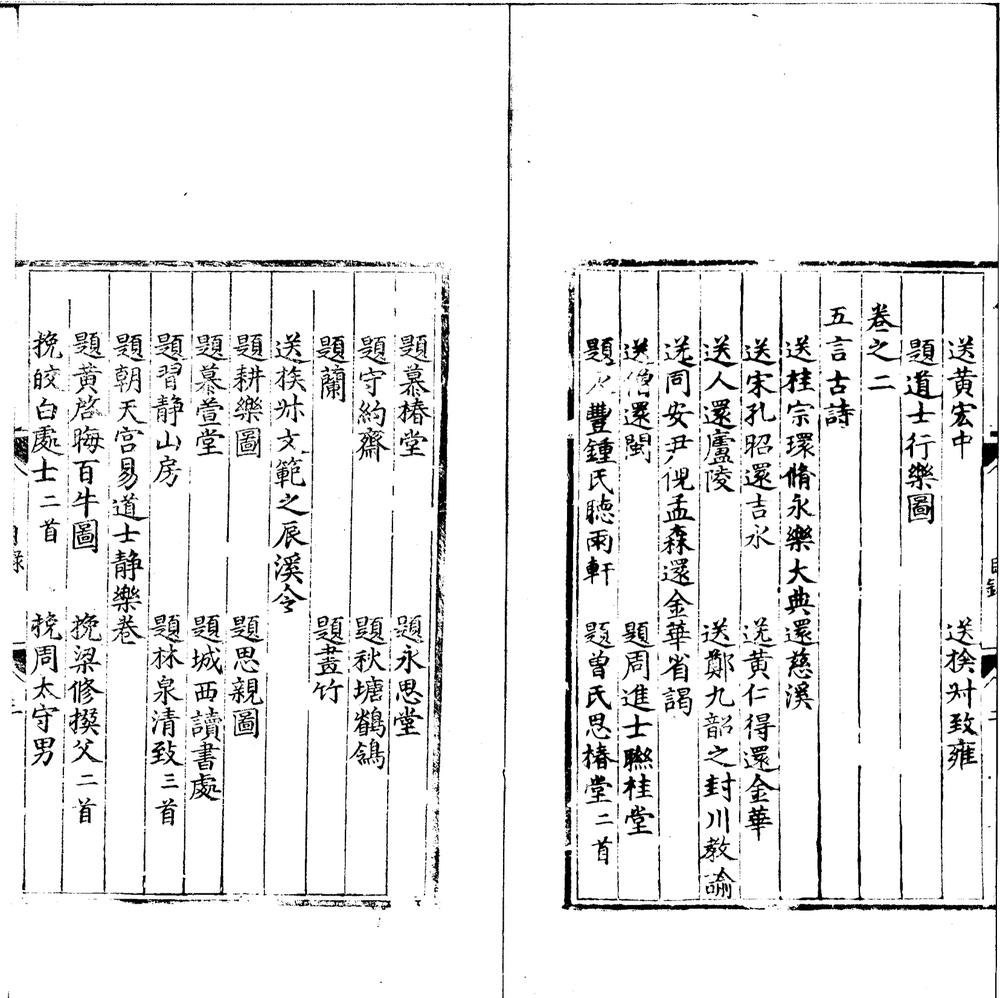 送黃宏中　送揆升致雍
題道士行樂圖
卷之二
五言古詩
送桂宗環脩永樂大典還慈溪
送宋孔昭還吉永　送黃仁得還金華
送人還廬陵　送鄭九韶之封川教諭
送同安尹倪孟森還金華省謁
送僧還閩　題周進士聯桂堂
題豐鍾氏聽雨軒　題曾氏思椿堂二首
題慕椿堂　題永思堂
題守約齋　題秋塘鶺鴒
題蘭　題畫竹
送文範之辰溪令
題耕樂圖　題思親圖
題慕萱堂　題城西讀書處
題習靜山房　題林泉清致三首
題朝天宮易道士靜樂卷
題黃啓晦百牛圖　挽梁修撰父二首
挽皎白處士二首　挽周太守男
目錄